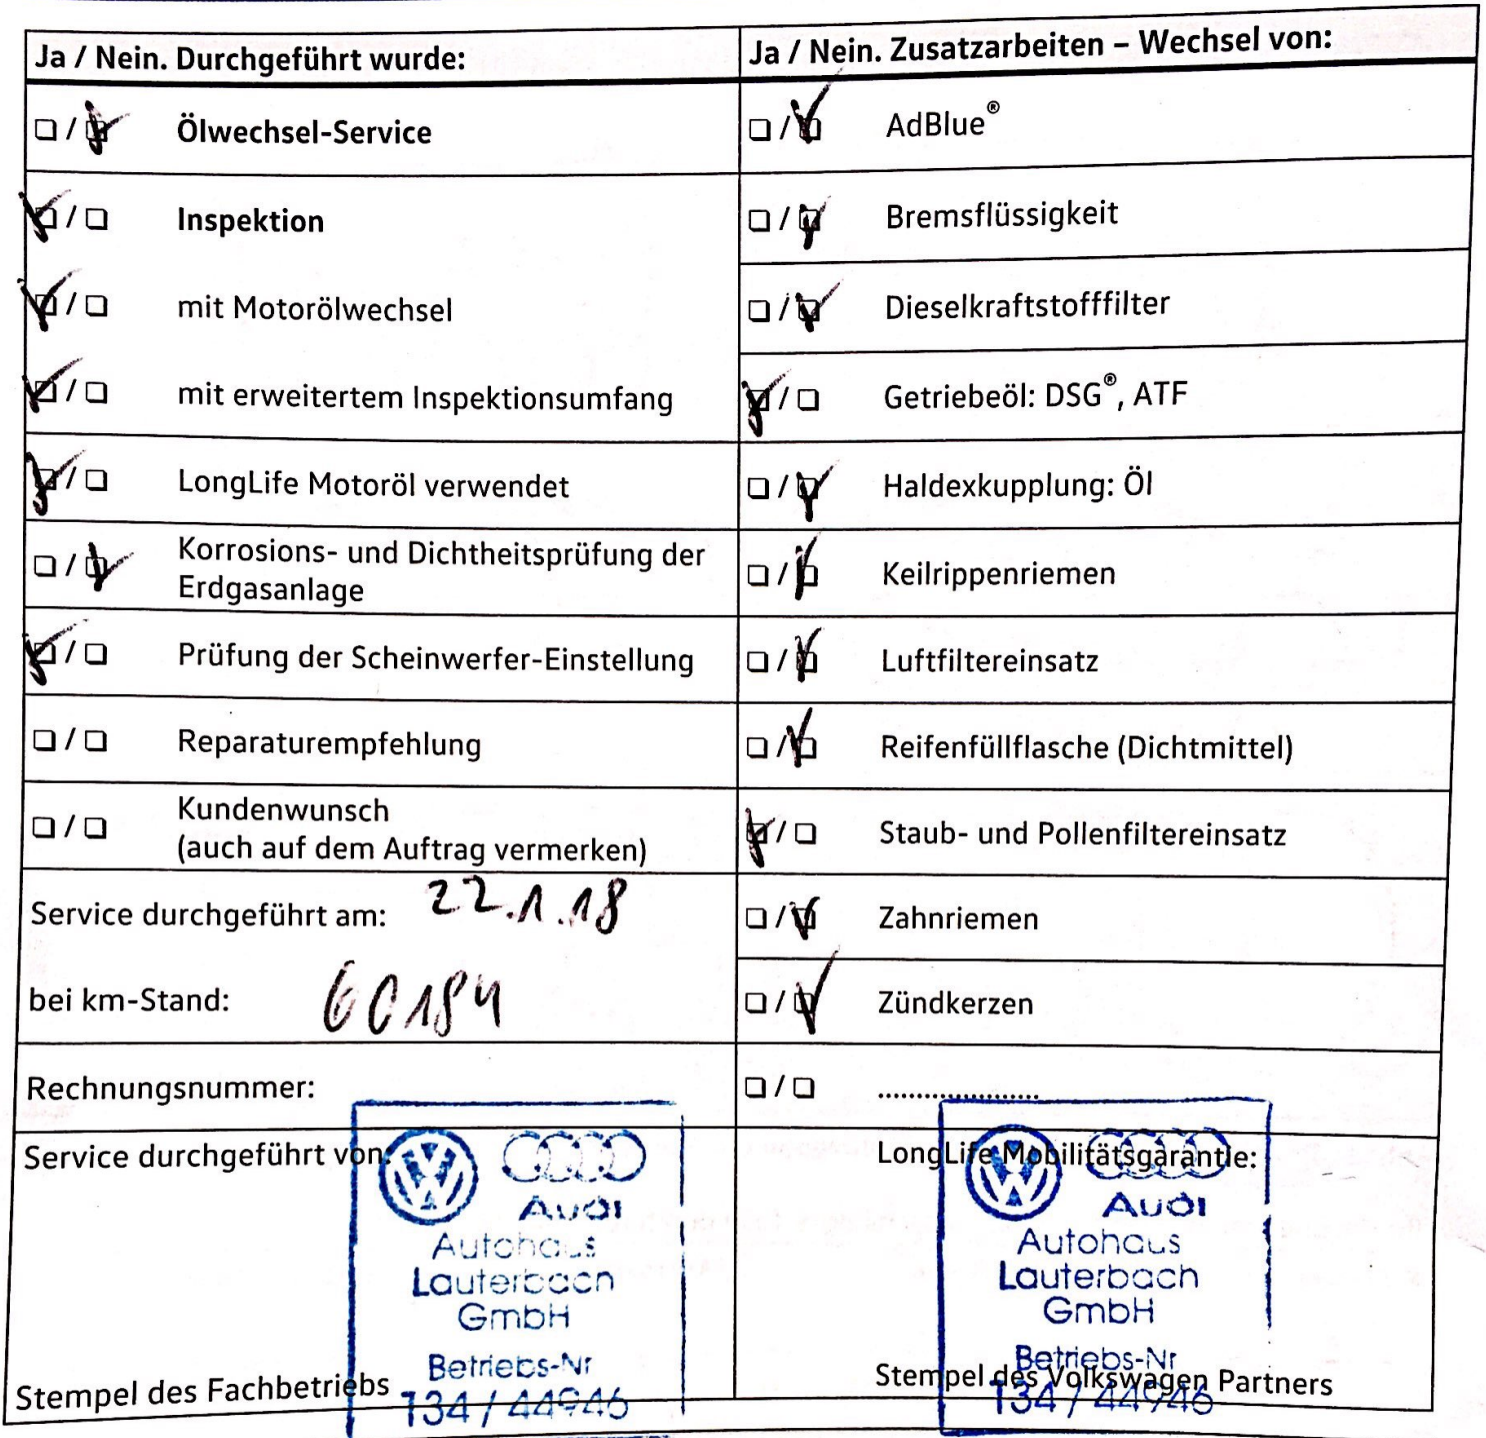 Ja / Nein. Durchgeführt wurde:
Ölwechsel-Service
Inspektion
mit Motorölwechsel
mit erweitertem Inspektionsumfang
LongLife Motoröl verwendet
Korrosions- und Dichtheitsprüfung der
Erdgasanlage
Prüfung der Scheinwerfer-Einstellung
Reparaturempfehlung
Kundenwunsch
(auch auf dem Auftrag vermerken)
Service durchgeführt am: 22.1.18
bei km-Stand: 60184
Rechnungsnummer:
Service durchgeführt von:
Audi
Autohaus
Lauterbach
GmbH
Betriebs-Nr
134 / 44946
Stempel des Fachbetriebs
Ja / Nein. Zusatzarbeiten – Wechsel von:
AdBlue®
Bremsflüssigkeit
Dieselkraftstofffilter
Getriebeöl: DSG®, ATF
Haldexkupplung: Öl
Keilrippenriemen
Luftfiltereinsatz
Reifenfüllflasche (Dichtmittel)
Staub- und Pollenfiltereinsatz
Zahnriemen
Zündkerzen
.....................
LongLife Mobilitätsgarantie:
Audi
Autohaus
Lauterbach
GmbH
Betriebs-Nr
134 / 44946
Stempel des Volkswagen Partners